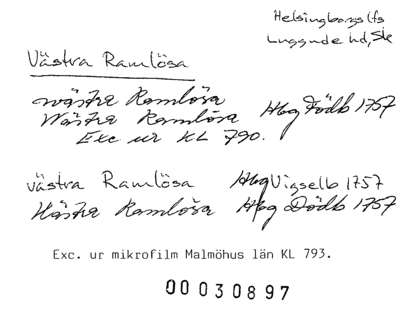 Helsingborgs lfs
Luggude hd, Sk
Västra Ramlösa
wästra Ramlösa
Wästra Ramlösa Hbg Födb 1757
Exc ur KL 790.
västra Ramlösa Hbg Vigselb 1757
Wästra Ramlösa Hbg Dödb 1757
Exc. ur mikrofilm Malmöhus län KL 793.
00030897